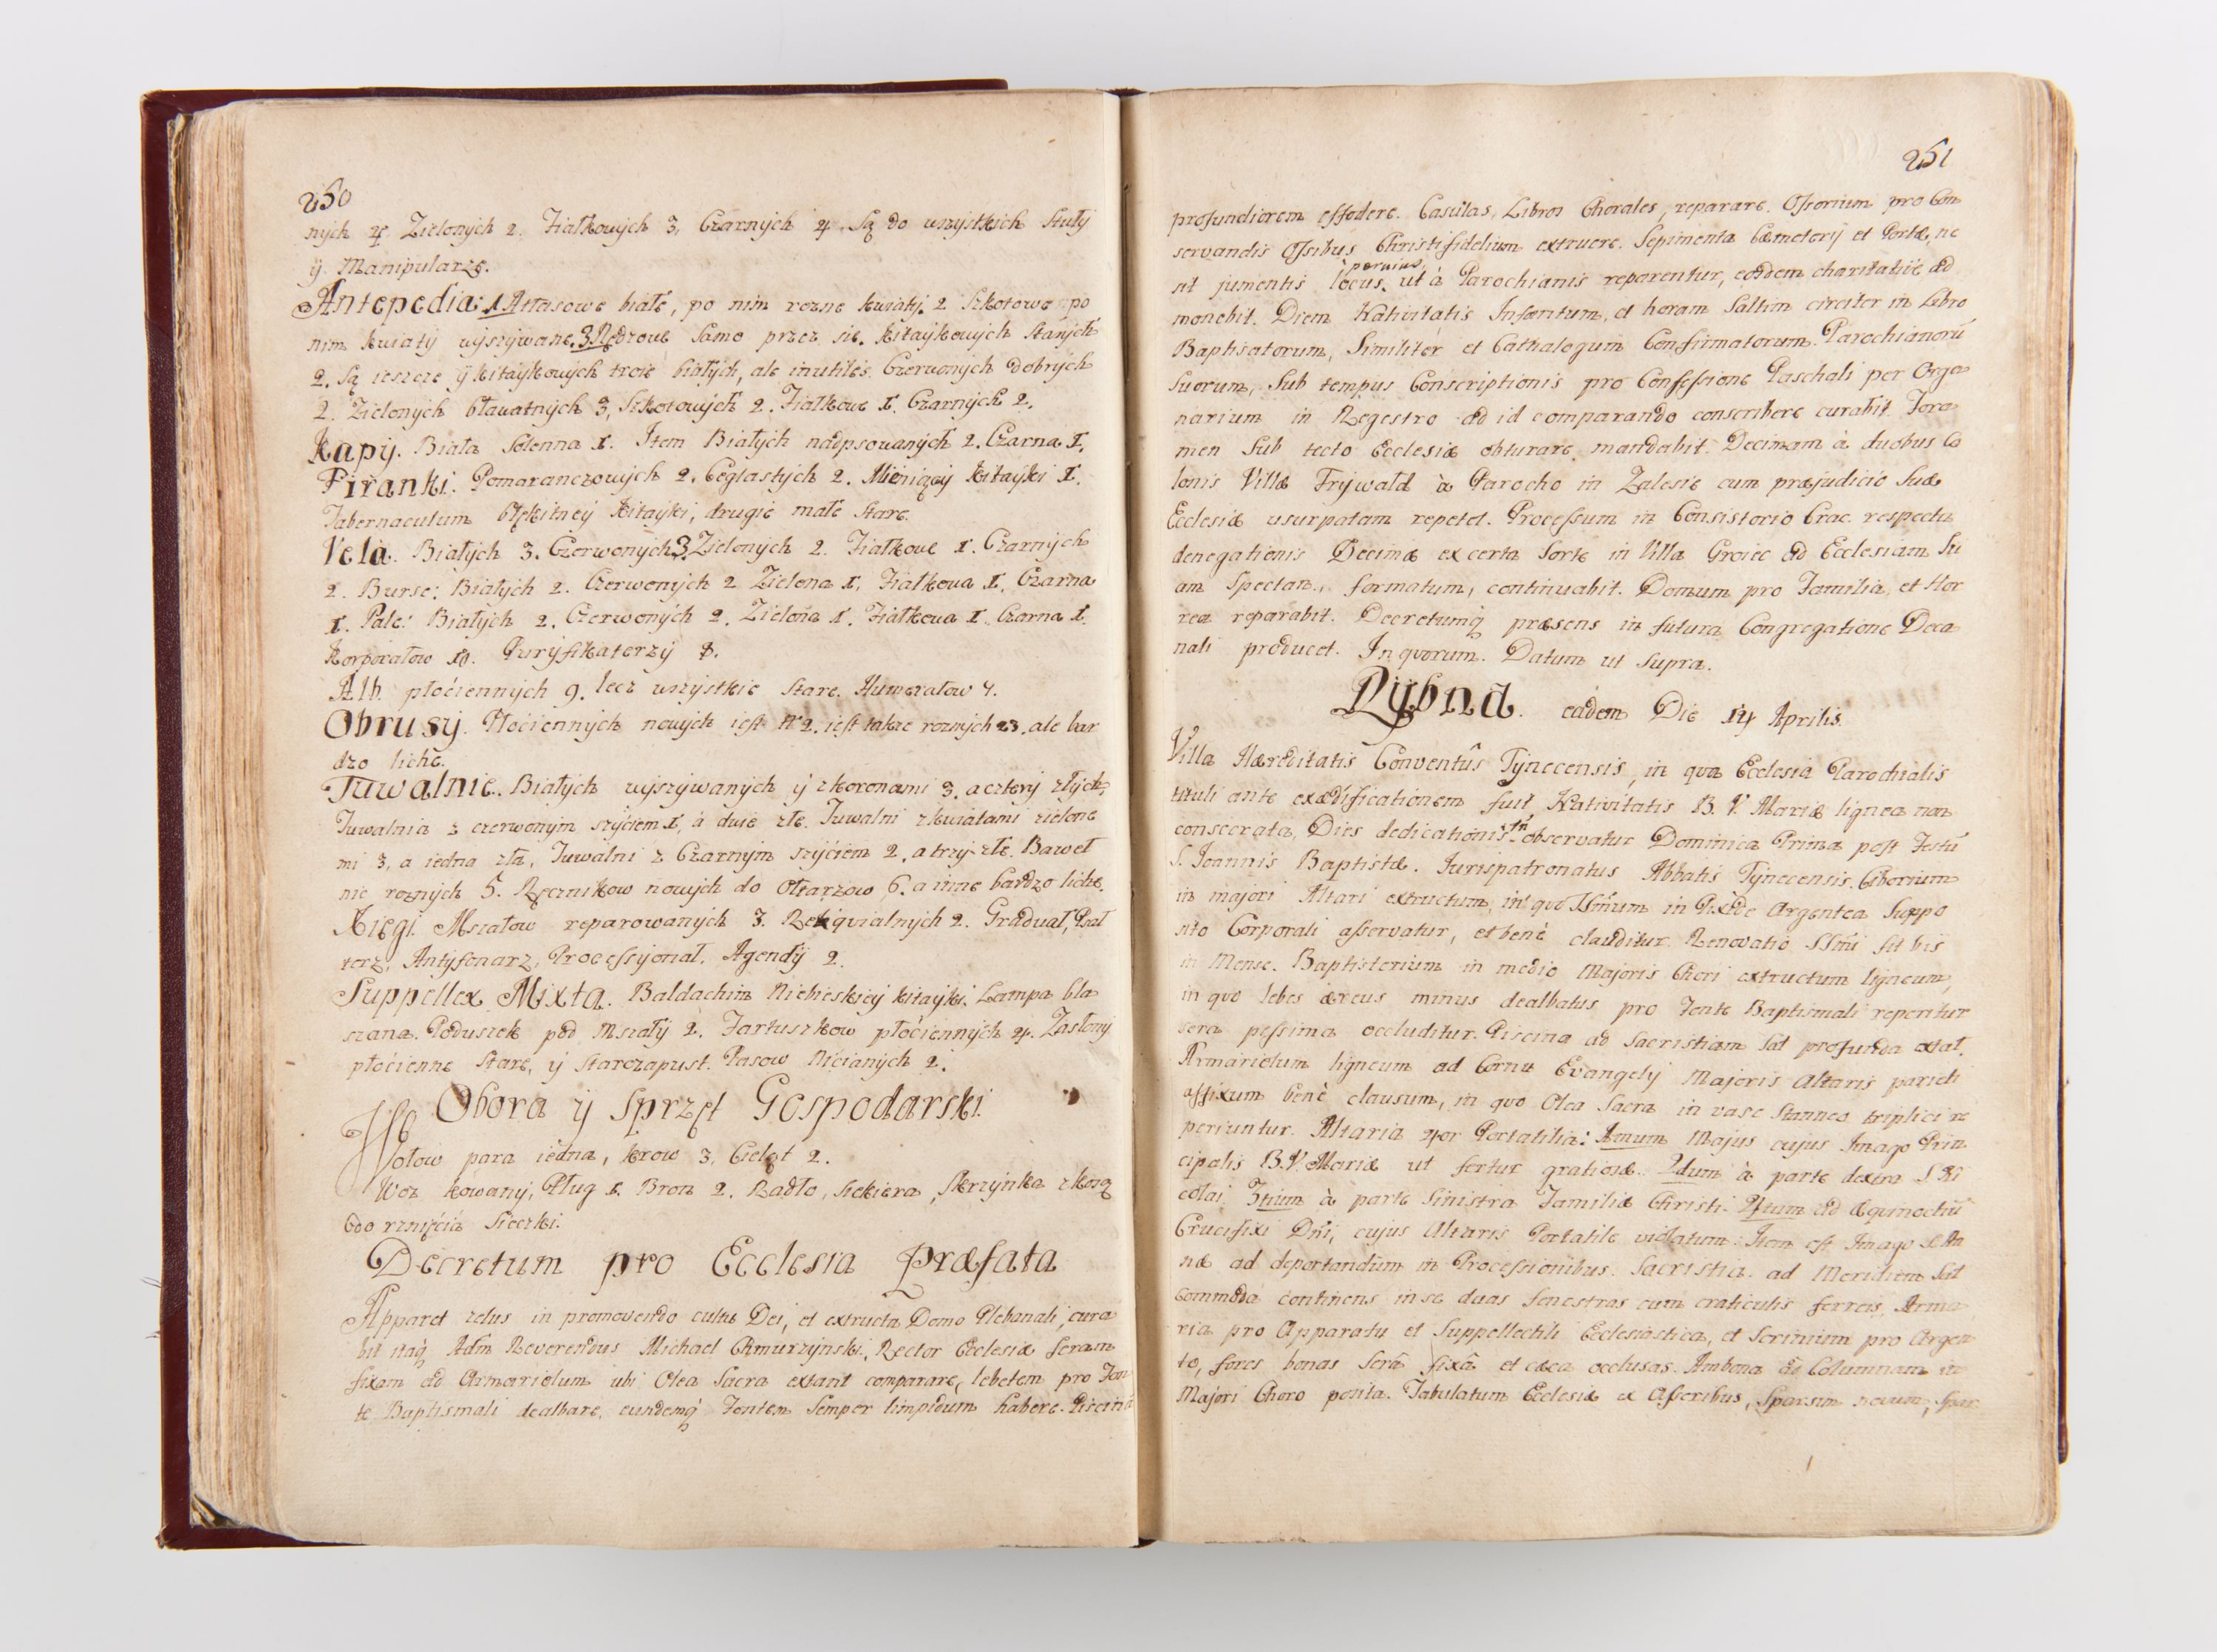 250
nych 4. Zielonych 2. Fiałkowych 3, Czarnych 4. Są do wszystkich Stuły
ÿ Manipularze.
Antepedia: 1 Attasowe białe, po nim rozne kwiaty. 2 Szkotowe po
nim kwiaty wyszywane. 3 Rędzowe samo przez się. Kitaykowych starych
2. Są ieszcze ÿ kitaykowych troie białych, ale inutiles. Czerwonych dobrych
2. Zielonych bławatnych 3, Szkotowych 2. Fiałkowe 1. Czarnych 2.
Kapy. Biała Solenna 1. Item Białych nadpsowanych 2. Czarna 1.
Firanki. Pomaranczowych 2. Ceglastych 2. Mieniącey kitayki 1.
Tabernaculum błękitney kitayki, drugie małe stare.
Vela. Białych 3. Czerwonych 3 Zielonych 2. Fiałkowe 1. Czarnych
2. Burse: Białych 2. Czerwonych 2 Zielona 1, Fiałkowa 1, Czarna
1. Pale: Białych 2. Czerwonych 2. Zielona 1. Fiałkowa 1. Czarna 1.
Korporałow 10. Puryfikaterzy 8.
Alb. płóciennych 9. lecz wszystkie stare. Humerałow 4.
Obrusy. Płociennych nowych iest Nº 2. iest także roznych 23. ale bar
dzo liche.
Tuwalnie. Białych wyszywanych ÿ z koronami 3. a cztery złych,
Tuwalnia z czerwonym szyciem 1, á dwie złe. Tuwalni z kwiatami zielone
mi 3, a iedna zła, Tuwalni z Czarnym szyciem 2, a trzy złe. Baweł
nic roznych 5. Ręcznikow nowych do Ołtarzow 6. a inne bardzo liche.
Xięgi. Mszałow reparowanych 3. Rekqvialnych 2. Graduał, Psał
terz, Antyfonarz, Processyonał. Agendy 2.
Suppellex Mixta. Baldachim Niebieskiey kitayki. Lampa bla
szana. Poduszek pod Mszały 2. Fartuszkow płóciennych 4. Zasłony
płócienne stare, ÿ starczapust. Pasow Nicianych 2.
Obora ÿ Sprzęt Gospodarski.
Wołow para iedna, krow 3, Cieląt 2.
Woz kowany, Pług 1. Bron 2. Radło, siekiera, skrzynka z kosą
do rznięcia Sieczki.
Decretum pro Ecclesia præfata
Apparet zelus in promovendo cultu Dei, et extructa Domo Plebanali, cura
bit itaq Adm Reverendus Michael Chmurzynski, Rector Ecclesiæ seram
fixam ad Armariolum ubi Olea Sacra extant comparare, lebetem pro Fon
te Baptismali dealbare, eundemq Fontem semper limpidum habere. Piscinã
251
profundiorem effodere. Casulas, Libros Chorales, reparare. Ossorium pro Con
servandis Ossibus Christifidelium extruere. Sepimenta Cæmeterij et Portæ, ne
pervius
sit jumentis locus, ut à Parochianis reparentur, eosdem charitativè ad
monebit. Diem Nativitatis Infantum, et horam Saltim circiter in Libro
Baptisatorum, Similiter et Cathalogum Confirmatorum Parochianorũ
Suorum, Sub tempus Conscriptionis pro Confessione Paschali per Orga
narium in Regestro ad id comparando conscribere curabit. Fora
men Sub tecto Ecclesiæ obturare mandabit. Decimam à duobus Co
lonis Villæ Frywałd à Parocho in Zalesie cum præjudicio Suæ
Ecclesiæ usurpatam repetet. Processum in Consistorio Crac. respectu
denegationis Decimæ ex certa sorte in Villa Groiec ad Ecclesiam Su
am spectan., formatum, continuabit. Domum pro Familia, et Hor
rea reparabit. Decretumq præsens in futura Congregatione Deca
nali producet. In quorum. Datum ut supra.
Rybna. eâdem Die 14 Aprilis.
Villa Hæreditatis Conventûs Tynecensis, in qva Ecclesia Parochialis
tituli ante exædificationem fuit Nativitatis B. V. Mariæ lignea non
tñ
consecrata, Dies dedicationis observatur Dominica Prima post Festũ
S. Joannis Baptistæ. Jurispatronatus Abbatis Tynecensis. Ciborium
in majori Altari extructum, in quo SSmum in Pixide Argentea suppo
sito Corporali asservatur, et benè clauditur. Renovatio SSmi fit bis
in Mense. Baptisterium in medio Majoris Chori extructum ligneum,
in quo lebes æreus minus dealbatus pro Fonte Baptismali reperitur
sera pessima occluditur. Piscina ad Sacristiam sat profunda extat.
Armariolum ligneum ad Cornu Evangelij Majoris Altaris parieti
affixum benè clausum, in quo Olea Sacra in vase Stanneo triplici re
periuntur. Altaria 4or Portatilia: 1mum Majus cujus Imago Prin
cipalis B.V. Mariæ ut fertur gratiosæ. 2dum à parte dextra S Ni
colai, 3tium à parte Sinistra Familiæ Christi. 4tum ad Æquinoctiũ
Crucifixi Dñi, cujus Altaris Portatile violatum. Item est Imago S An
næ ad deportandum in Processionibus. Sacristia ad Meridiem sat
commoda continens in se duas fenestras cum craticulis ferreis. Arma
ria pro Apparatu et Suppellectili Ecclesiastica, et Scrinium pro Argen
to, fores bonas serâ fixâ et cæca occlusas. Ambona ad Columnam in
Majori Choro posita. Tabulatum Ecclesiæ ex Asseribus, sparsim novum, spar